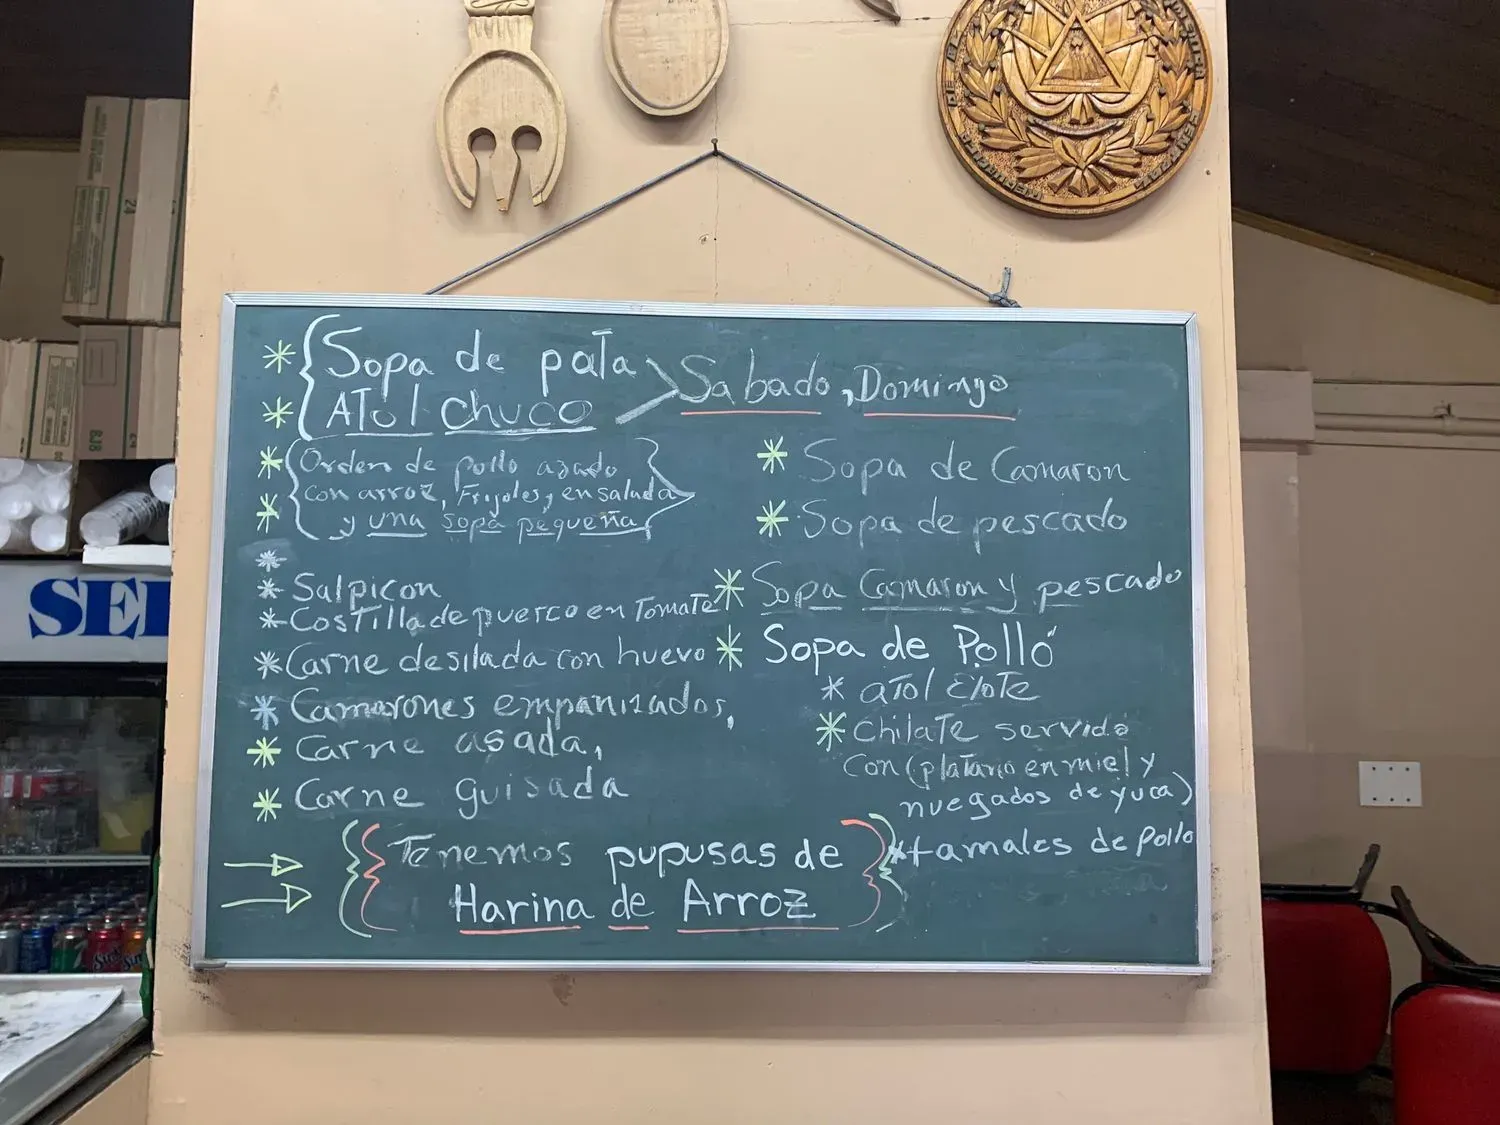 Sopa de pata
Atol chuco
Sabado, Domingo
Orden de pollo azado
con arroz, Frijoles, ensalada
y una sopa pequeña
Salpicon
Costilla de puerco en Tomate
Carne desilada con huevo
Camarones empanizados,
Carne asada,
Carne guisada
Sopa de Camaron
Sopa de pescado
Sopa Camaron y pescado
Sopa de Pollo
atol Elote
Chilate servido
con (platano en miel y
nuegados de yuca)
tamales de pollo
Tenemos pupusas de
Harina de Arroz
SE
24